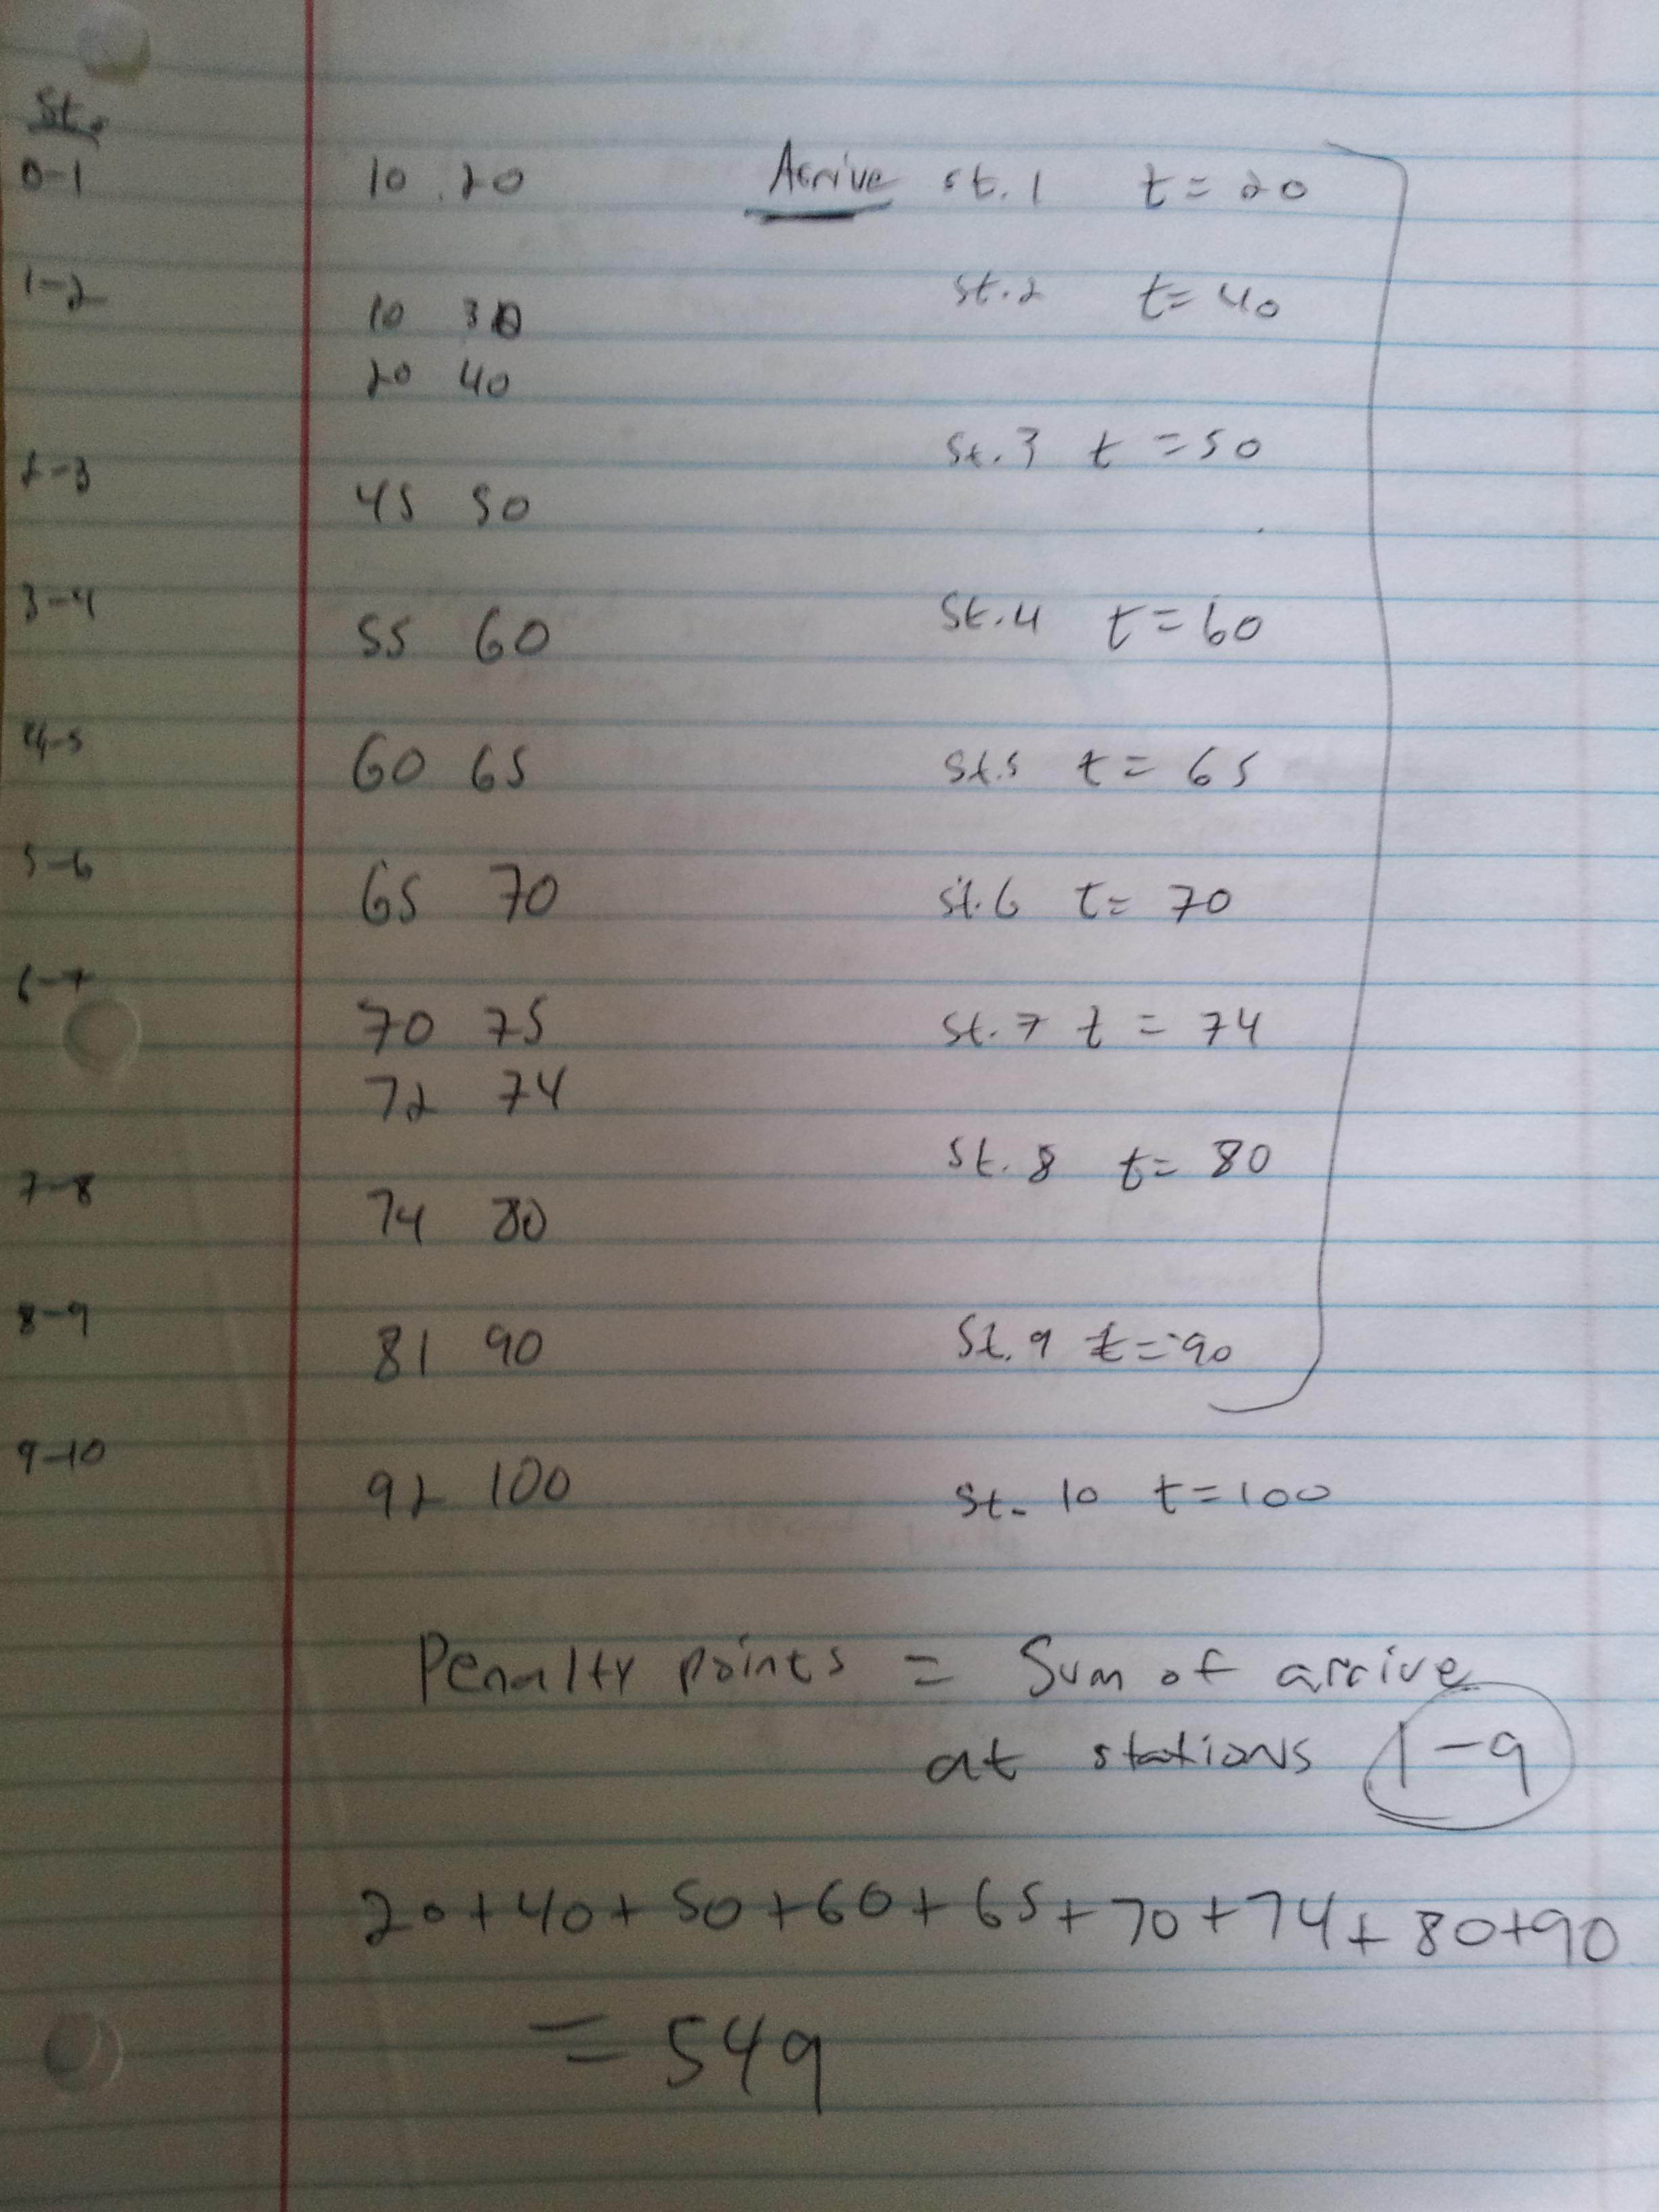 St.
0-1 10 20 Arrive st. 1 t = 20
1-2 st. 2 t = 40
10 30
20 40
st. 3 t = 50
2-3 45 50
3-4 55 60 st. 4 t = 60
4-5 60 65 st. 5 t = 65
5-6 65 70 st. 6 t = 70
6-7 70 75 st. 7 t = 74
72 74
st. 8 t = 80
7-8 74 80
8-9 81 90 St. 9 t = 90
9-10 92 100 st. 10 t = 100
Penalty points = Sum of arrive
at stations 1-9
20+40+50+60+65+70+74+80+90
= 549